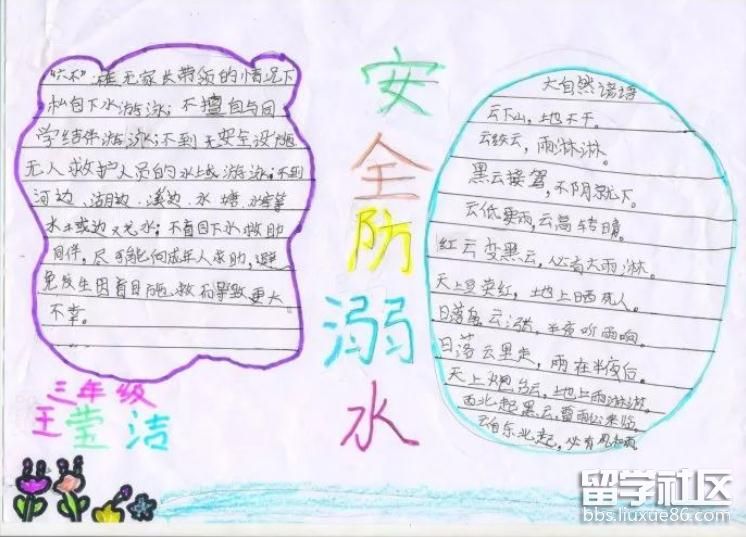 "六不"：在无家长带领的情况下
私自下水游泳；不擅自与同
学结伴游泳；不到无安全设施
无人救护人员的水域游泳；不到
河边、湖边、溪边、水塘、水库等
水域边玩水；不盲目下水救助
同伴，尽可能向成年人求助，避
免发生因盲目施救而导致更大
不幸。
三年级
王莹洁
安
全
防
溺
水
大自然谚语
云下山，地不干。
云绞云，雨淋淋。
黑云接驾，不阴就下。
云低要雨，云高转晴。
红云变黑云，必有大雨淋。
天上豆荚红，地上晒死人。
日落乌云涨，半夜听雨响。
日落云里走，雨在半夜后。
天上炮台云，地上雨淋淋。
西北起黑云，雷雨必来临。
云自东北起，必有风和雨
留学社区
bbs.liuxue86.com